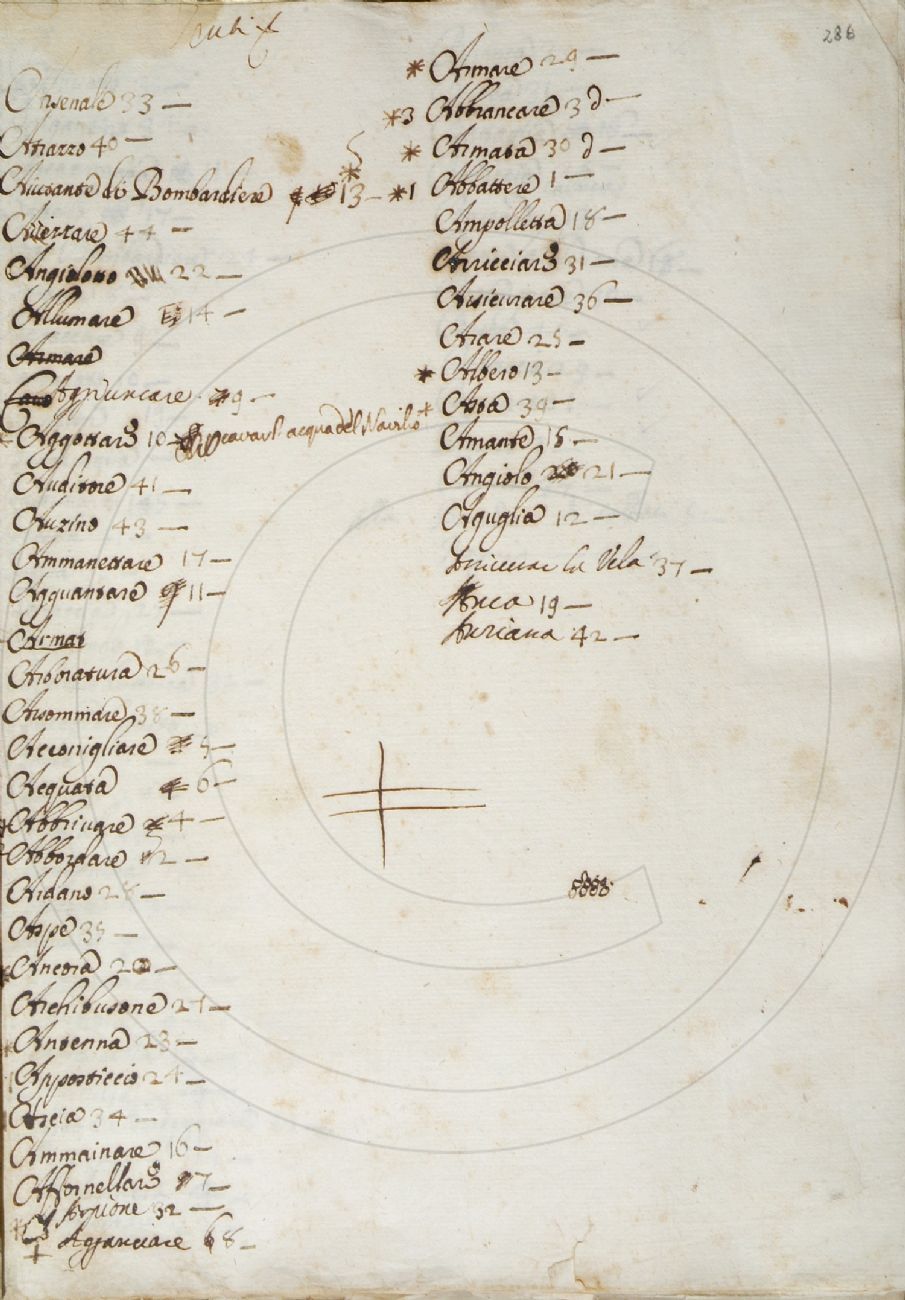 286
Arsenale 33 —
Atrazzo 40 —
Aiutante di Bombardiere 13 —
5
Azerrare 44 —
Angiolono 22 —
Allumare 14 —
Armare
Agriuncare 9 —
Aggottare 10 — cavar l'acqua del Navilio +
Auditore 41 —
Auzino 43 —
Ammanettare 17 —
Agguantare 11 —
Armat
Arboratura 26 —
Assommare 38 —
Acconigliare 5 —
Acquata 6 —
Abbrivare 4 —
Abbordare 2 —
Argano 28 —
Aspe 35 —
Ancora 20 —
Archibusone 27 —
Antenna 23 —
Apposticcio 24 —
Ascia 34 —
Ammainare 16 —
Affornellare 7 —
Arpione 32 —
+ Agganciare 8 —
* Armare 29 —
*3 Abbrancare 3 d —
* Armata 30 d —
*1 Abbattere 1 —
Ampolletta 18 —
Arricciare 31 —
Assicurare 36 —
Arare 25 —
* Albero 13 —
Asta 39 —
Amante 15 —
Angiolo 21 —
Aguglia 12 —
Arricciar la Vela 37 —
Anca 19 —
Auriana 42 —